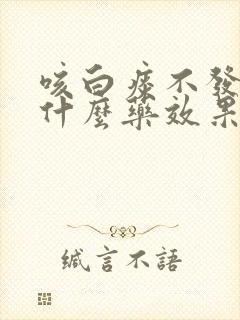 咳白痰不發
什麼藥效果
緘言不語